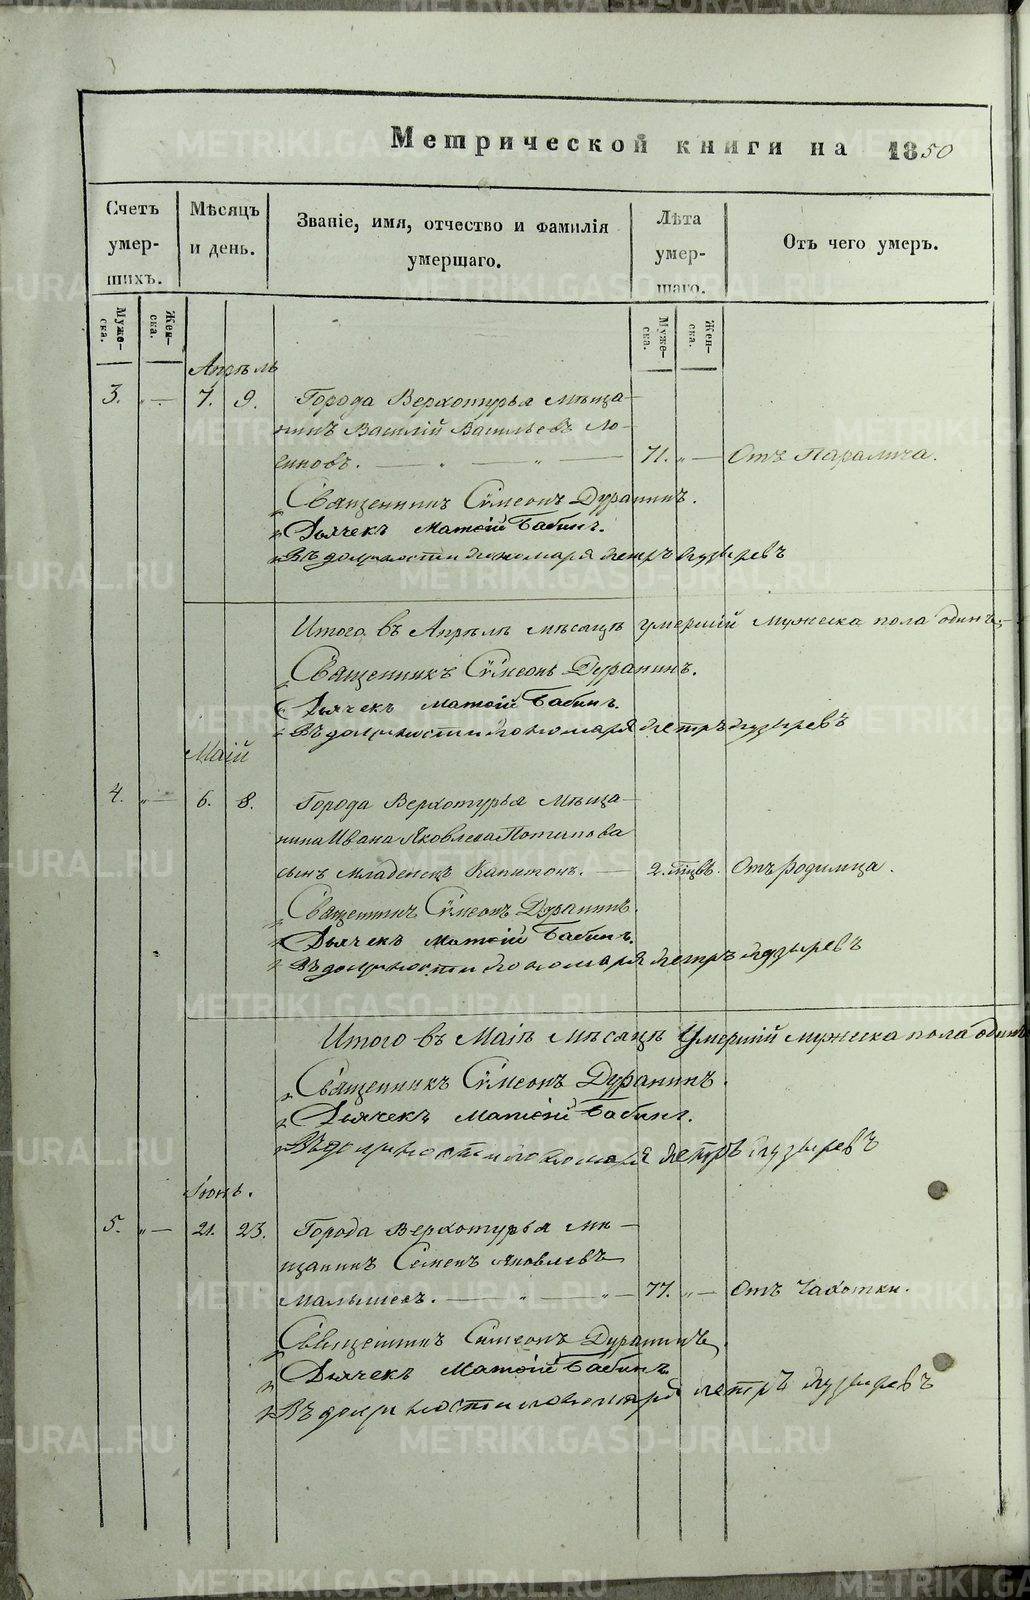 METRIKI.GASO-URAL.RU
Метрической книги на 1850
Счетъ умершихъ.
Мѣсяцъ и день.
Званіе, имя, отчество и фамилія умершаго.
Лѣта умершаго.
Отъ чего умеръ.
Мужеска.
Женска.
Мужеска.
Женска.
Апрѣль
3. „ — 7. 9. Города Верхотурья мѣща-
нинъ Василій Васильевъ Ло-
гиновъ. — „ — „ — 71. „ — Отъ Паралича.
Священникъ Сѵмеонъ Дурапинъ.
Дьячекъ Матѳій Бабинъ.
Въ должности пономаря Петръ Пузыревъ
Итого въ Апрѣлѣ мѣсяцѣ умершій мужеска пола одинъ.
Священникъ Сѵмеонъ Дурапинъ.
Дьячекъ Матѳій Бабинъ.
Въ должности пономаря Петръ Пузыревъ
Маій
4. „ — 6. 8. Города Верхотурья мѣща-
нина Ивана Яковлева Потапова
сынъ младенецъ Капитонъ. — 2. мцвъ. Отъ родимца.
Священникъ Сѵмеонъ Дурапинъ.
Дьячекъ Матѳій Бабинъ.
Въ должности пономаря Петръ Пузыревъ
Итого въ Маіѣ мѣсяцѣ умершій мужеска пола одинъ
Священникъ Сѵмеонъ Дурапинъ.
Дьячекъ Матѳій Бабинъ.
Въ должности пономаря Петръ Пузыревъ
Іюнь.
5. „ — 21. 23. Города Верхотурья мѣ-
щанинъ Семенъ Яковлевъ
Малышевъ. — „ — „ — 77. „ — Отъ чахотки.
Священникъ Сѵмеонъ Дурапинъ.
Дьячекъ Матѳій Бабинъ
Въ должности пономаря Петръ Пузыревъ